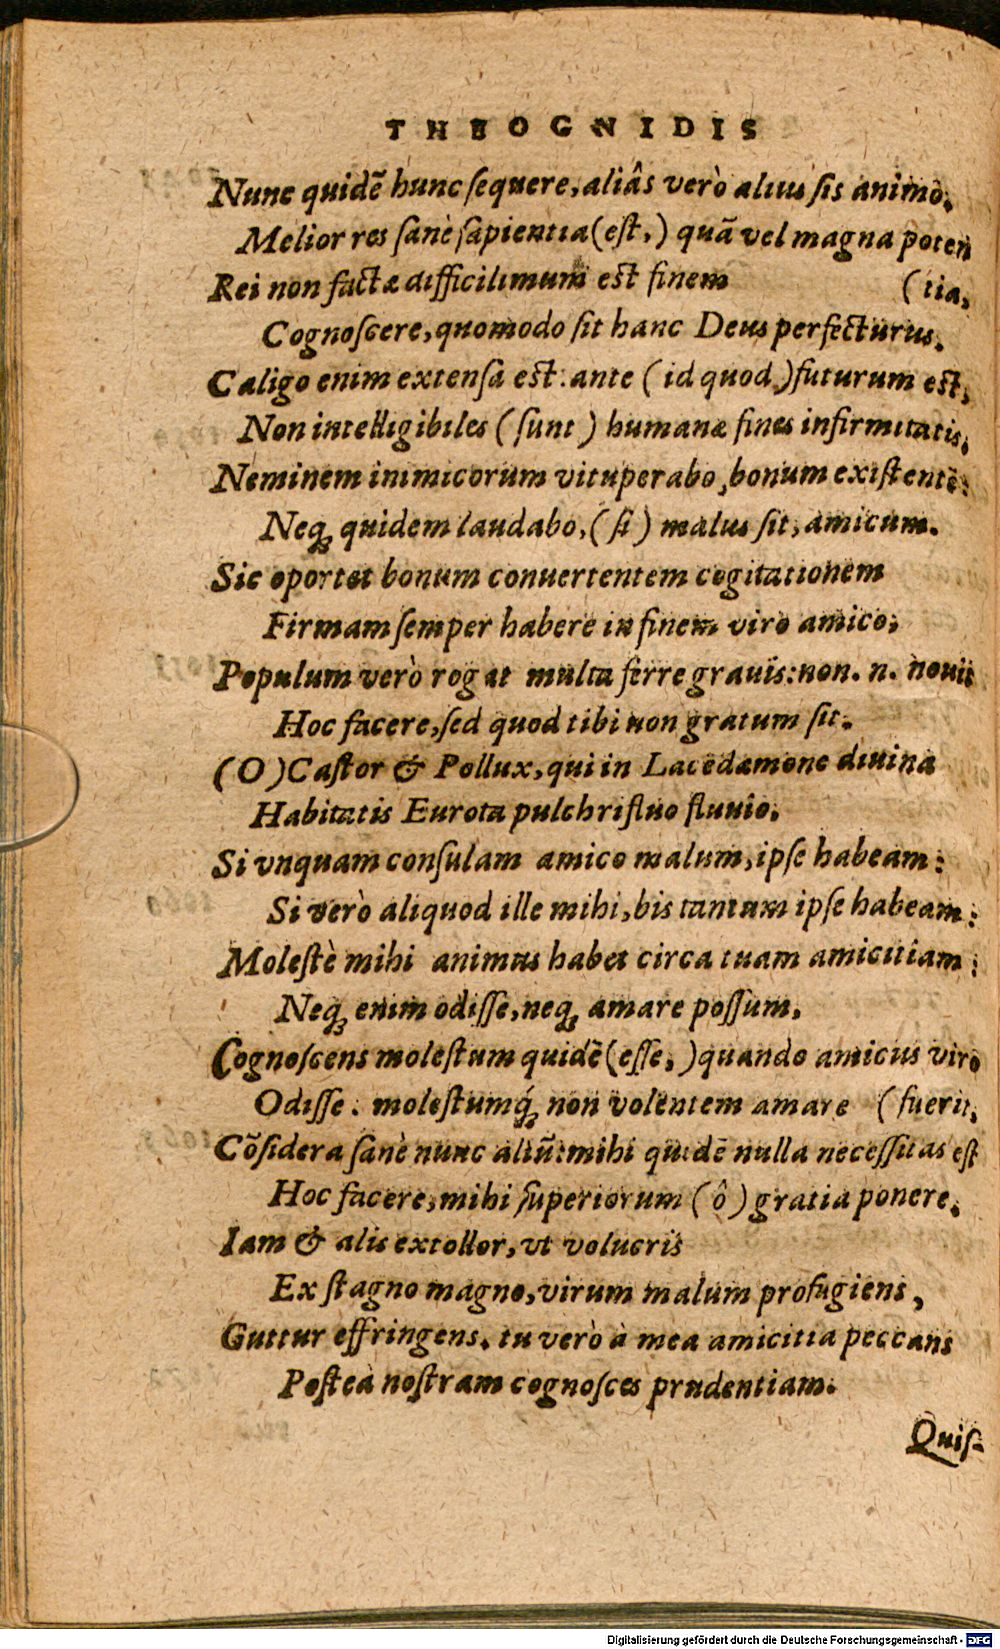 THEOGNIDIS
Nunc quidē hunc ſequere, aliâs verò alius ſis animo.
Melior res ſanè ſapientia (eſt,) quā vel magna poten
Rei non factæ difficilimum eſt finem (tia,
Cognoſcere, quomodo ſit hanc Deus perfecturus.
Caligo enim extenſa eſt: ante (id quod) futurum eſt,
Non intelligibiles (ſunt) humanæ fines infirmitatis.
Neminem inimicorum vituperabo, bonum exiſtentē:
Neq; quidem laudabo, (ſi) malus ſit, amicum.
Sic oportet bonum conuertentem cogitationem
Firmam ſemper habere in finem viro amico;
Populum verò rogat multa ferre grauis: non. n. nouit
Hoc facere, ſed quod tibi non gratum ſit.
(O) Caſtor & Pollux, qui in Lacedæmone diuina
Habitatis Eurota pulchrifluo fluuio.
Si vnquam conſulam amico malum, ipſe habeam:
Si verò aliquod ille mihi, bis tantum ipſe habeam:
Moleſtè mihi animus habet circa tuam amicitiam:
Neq; enim odiſſe, neq; amare poſſum,
Cognoſcens moleſtum quidē (eſſe,) quando amicus viro
Odiſſe. moleſtumq́; non volentem amare (fuerit,
Cōſidera ſanè nunc aliū: mihi quidē nulla neceſſitas eſt
Hoc facere, mihi ſuperiorum (ô) gratia ponere.
Iam & alis extollor, vt volucris
Ex ſtagno magno, virum malum profugiens,
Guttur effringens. tu verò à mea amicitia peccans
Poſteà noſtram cognoſces prudentiam.
Quiſ-
Digitalisierung gefördert durch die Deutsche Forschungsgemeinschaft - DFG